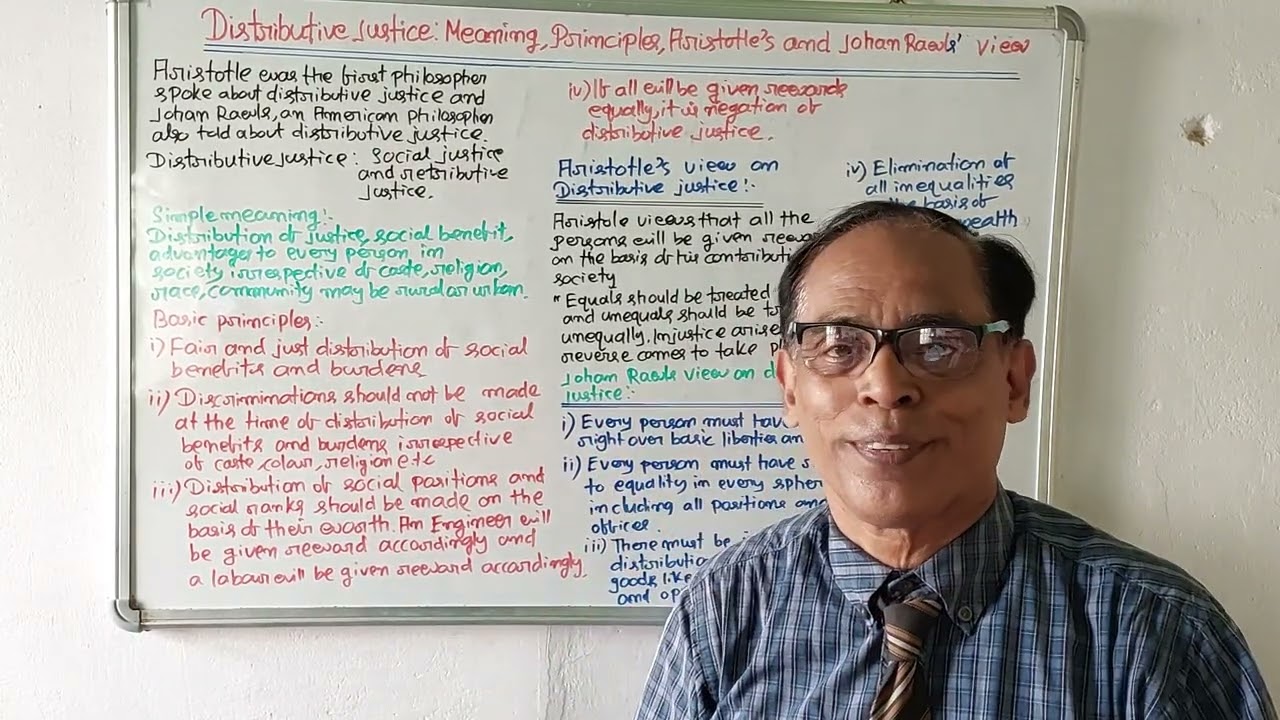 Distributive Justice: Meaning, Principles, Aristotle's and Johan Rawls' view
Aristotle was the first philosopher
spoke about distributive justice and
Johan Rawls, an American philosopher
also told about distributive justice.
Distributive justice: Social justice
and retributive
justice.
Simple meaning:-
Distribution of justice, social benefit,
advantages to every person in
society irrespective of caste, religion,
race, community may be rural or urban.
Basic principles:-
i) Fair and just distribution of social
benefits and burdens
ii) Discriminations should not be made
at the time of distribution of social
benefits and burdens irrespective
of caste, colour, religion etc
iii) Distribution of social positions and
social ranks should be made on the
basis of their worth. An Engineer will
be given reward accordingly and
a labour will be given reward accordingly.
iv) If all will be given rewards
equally, it is negation of
distributive justice.
Aristotle's view on
Distributive justice:-
Aristole views that all the
persons will be given
on the basis of his
society
"Equals should be treated
and unequals should be
unequally. Injustice
reverse comes to take
Joham Rawls view on
justice:-
i) Every person must
right over basic liberties
ii) Every person must have
to equality in every
including all positions
offices.
iii) There must be
distribution
goods like
and
iv) Elimination of
all inequalities
basis of
wealth